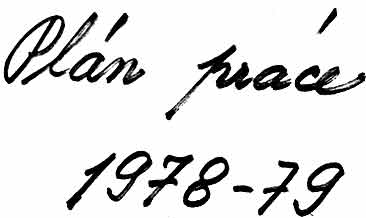 Plán práce
1978-79